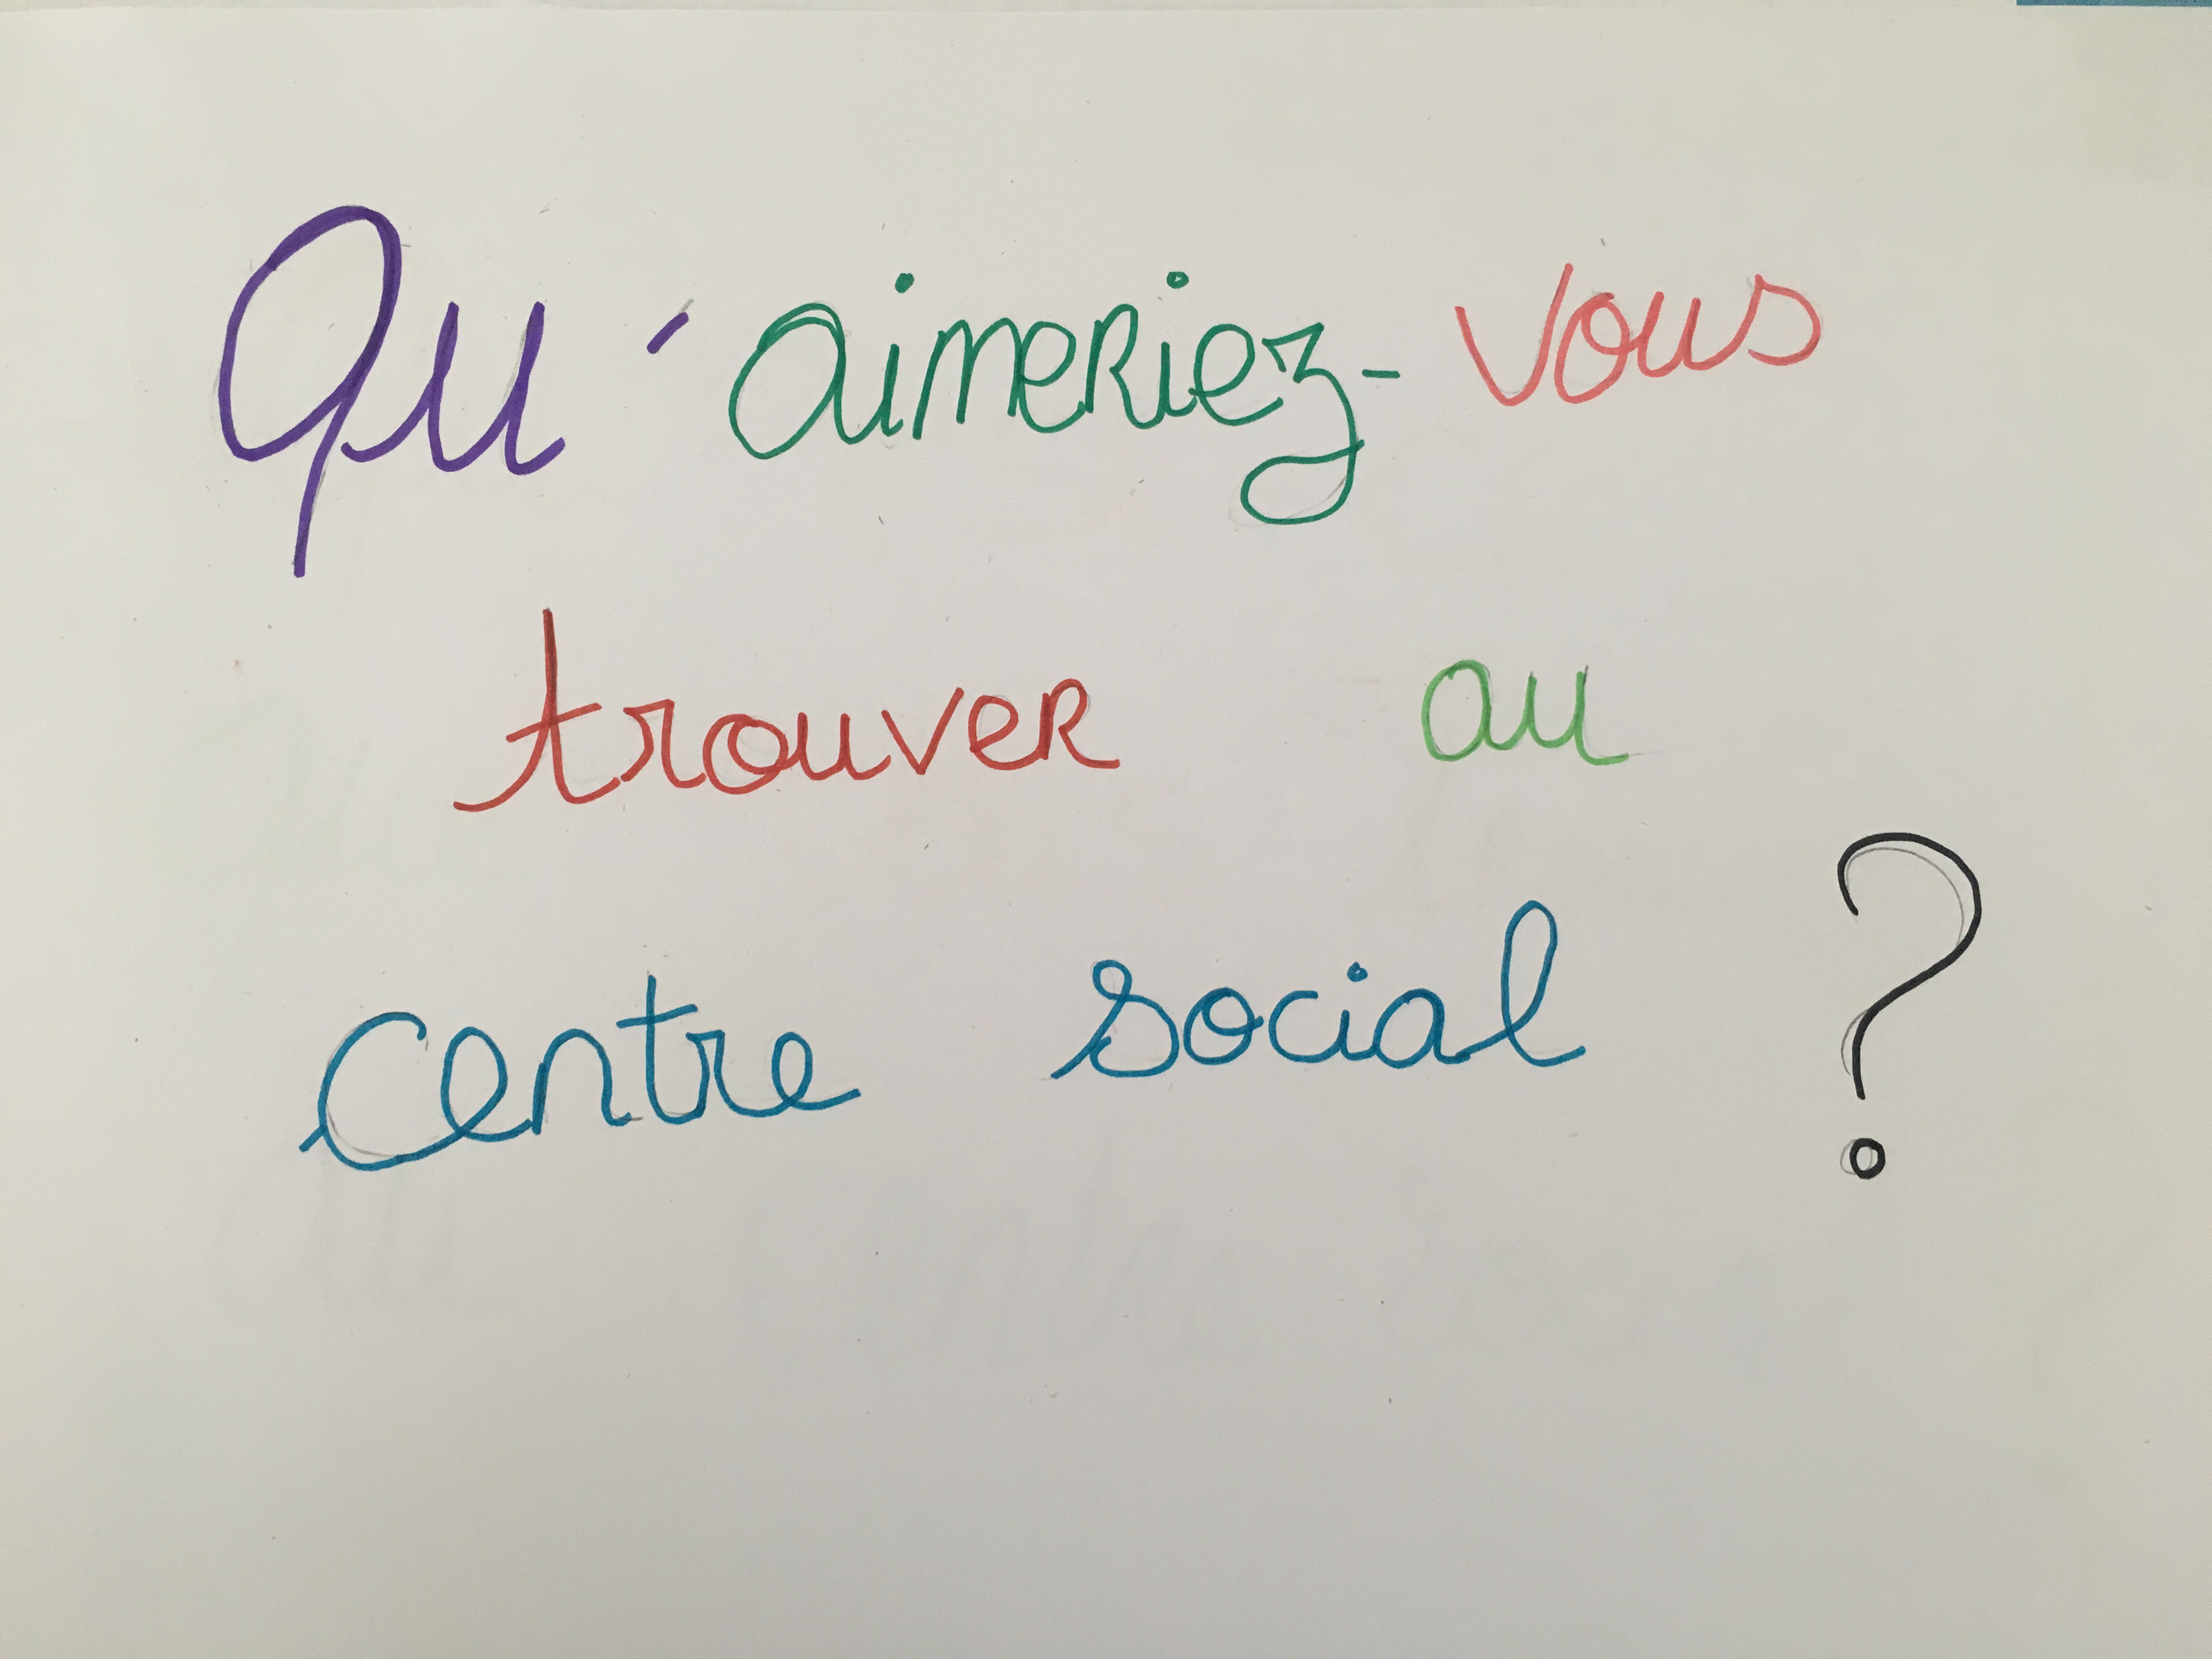 Qu'aimeriez-vous
trouver au
centre social ?